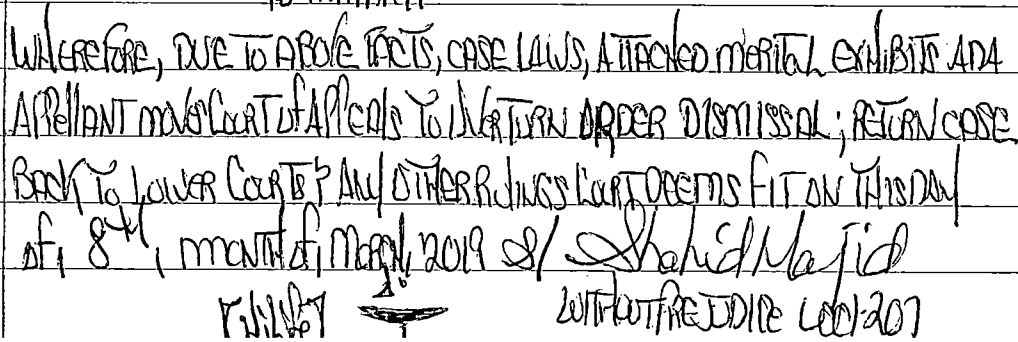 WHEREFORE, DUE TO ABOVE FACTS, CASE LAWS, ATTACHED MERITAL EXHIBITS ADA
APPELLANT MOVES COURT OF APPEALS TO OVERTURN ORDER DISMISSAL; RETURN CASE
BACK TO LOWER COURTS & ANY OTHER RULINGS COURT DEEMS FIT ON THIS DAY
OF, 8TH, MONTH OF, MARCH, 2019 S/ Shahid Majid
WITHOUT PREJUDICE UCC1-207